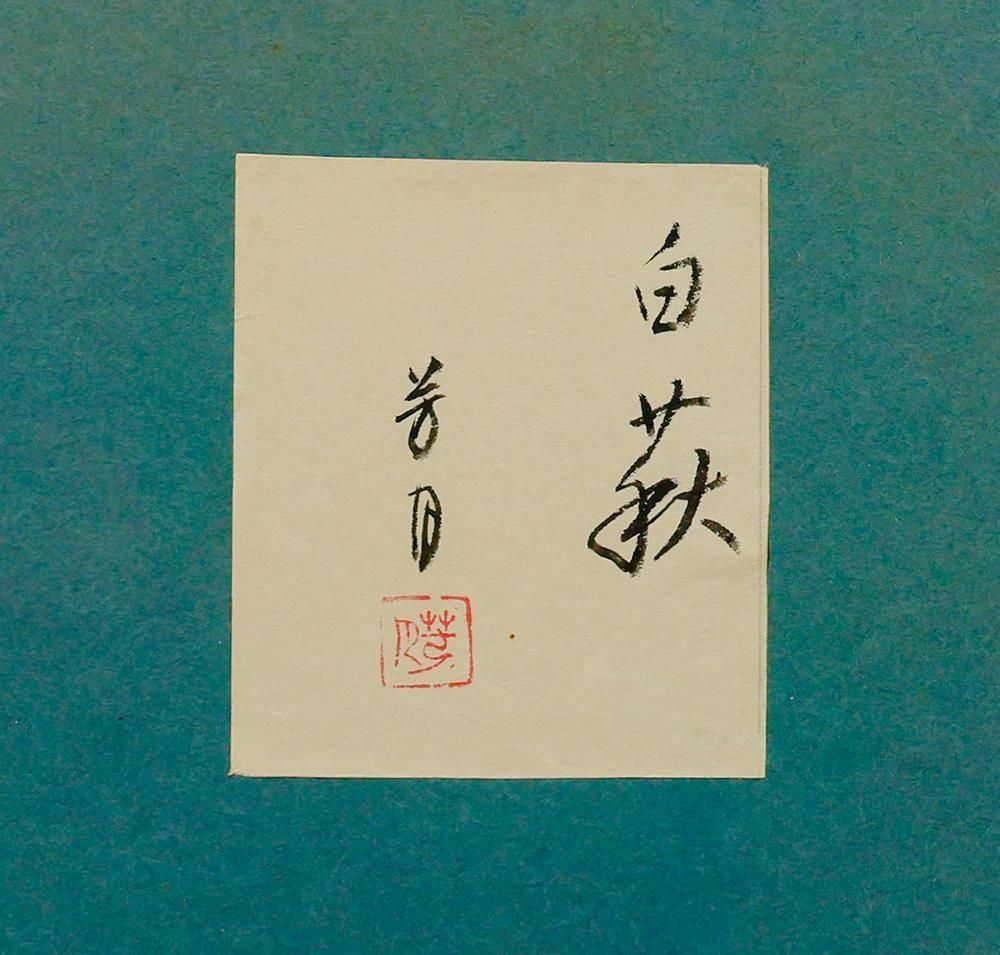 白萩
芳月